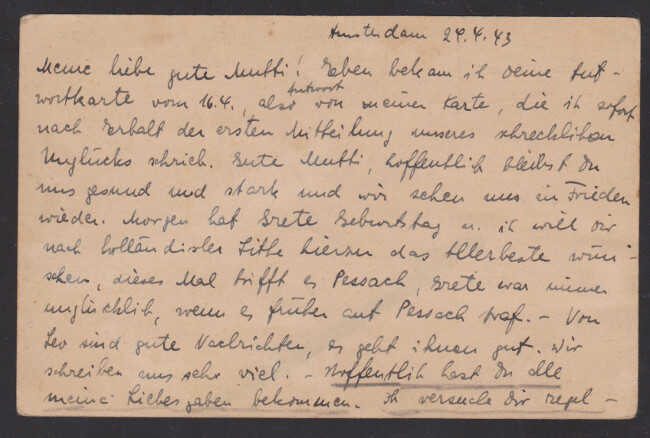 Amsterdam 29.4.43
Meine liebe gute Mutti! Eben bekam ich Deine Ant-
Antwort
wortkarte vom 16.4., also von meiner Karte, die ich sofort
nach Erhalt der ersten Mitteilung unseres schrecklichen
Unglücks schrieb. Gute Mutti, hoffentlich bleibst Du
uns gesund und stark und wir sehen uns in Frieden
wieder. Morgen hat Grete Geburtstag u. ich will Dir
nach holländischer Sitte hierzu das Allerbeste wün-
schen, dieses Mal trifft es Pessach, Grete war immer
unglücklich, wenn es früher auf Pessach traf. – Von
Leo sind gute Nachrichten, es geht ihnen gut. Wir
schreiben uns sehr viel. – Hoffentlich hast Du alle
meine Liebesgaben bekommen. Ich versuche Dir regel-